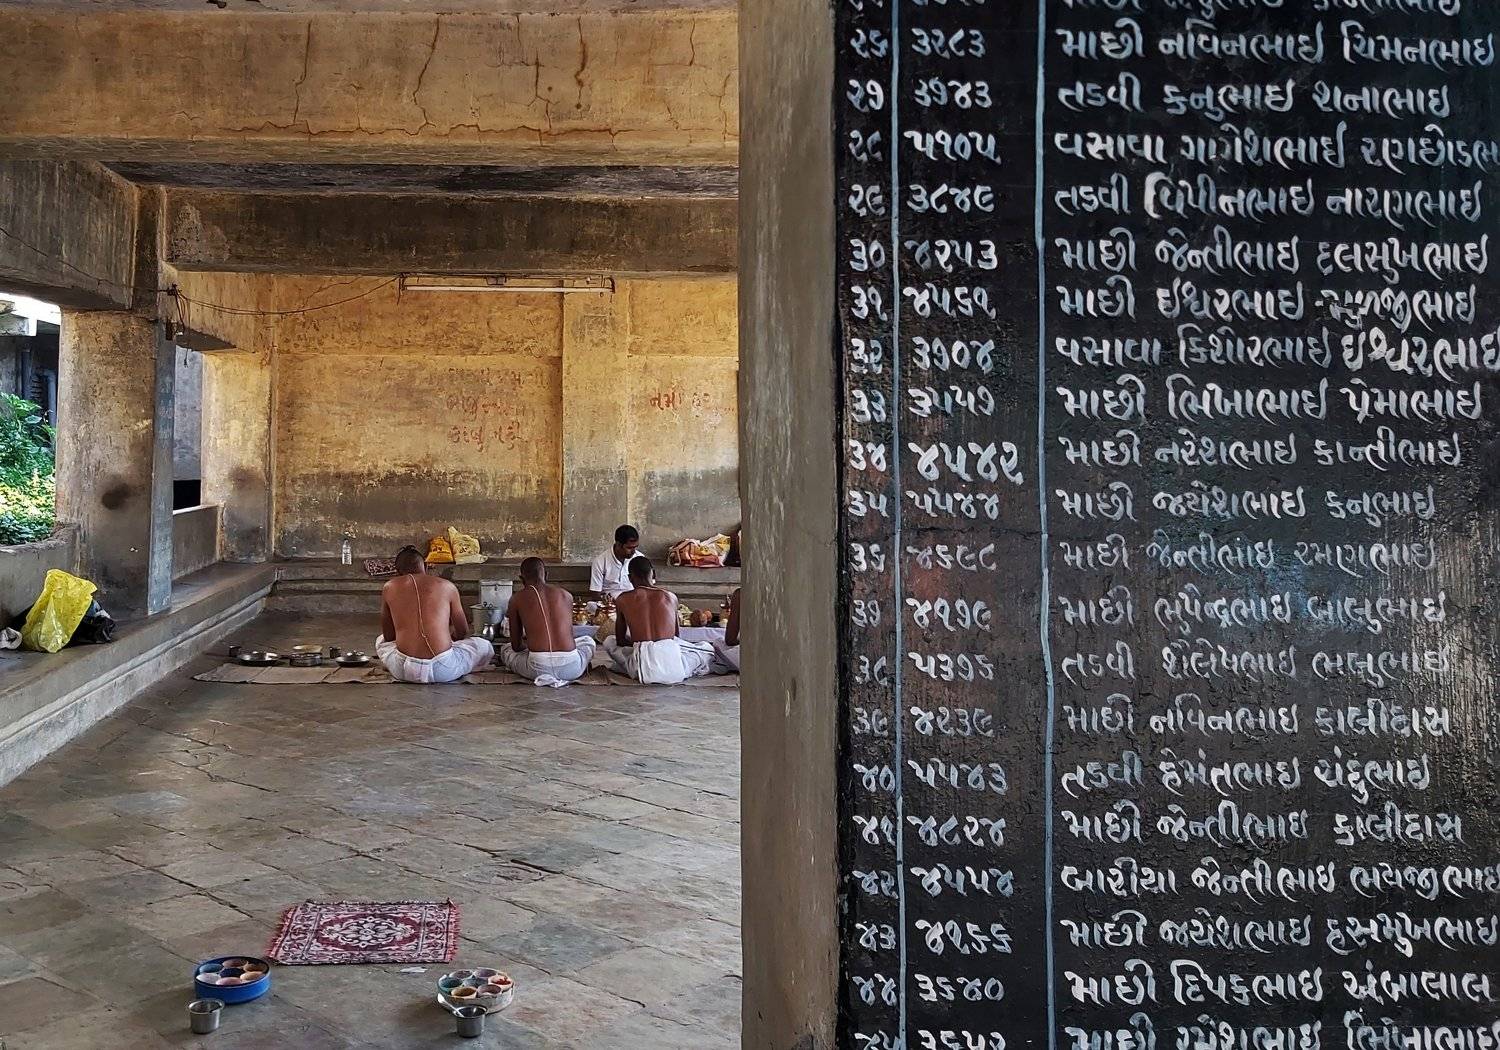 ૨૬ ૩૨૮૩ માછી નવિનભાઇ ચિમનભાઇ
૨૭ ૩૭૪૩ તડવી કનુભાઇ શનાભાઇ
૨૮ ૫૧૦૫ વસાવા ગણેશભાઇ
૨૯ ૩૮૪૯ તડવી વિપીનભાઇ નારણભાઇ
૩૦ ૪૨૫૩ માછી જેન્તીભાઇ દલસુખભાઇ
૩૧ ૪૫૬૧ માછી ઇશ્વરભાઇ મુળજીભાઇ
૩૨ ૩૭૦૪ વસાવા કિશોરભાઇ ઇશ્વરભાઇ
૩૩ ૩૫૫૭ માછી ભિખાભાઇ પ્રેમાભાઇ
૩૪ ૪૫૪૨ માછી નરેશભાઇ કાન્તીભાઇ
૩૫ ૫૫૪૪ માછી જયેશભાઇ કનુભાઇ
૩૬ ૪૬૯૮ માછી જેન્તીભાઇ રમણભાઇ
૩૭ ૪૧૭૯ માછી ભુપેન્દ્રભાઇ બાલુભાઇ
૩૮ ૫૩૭૬ તડવી શૈલેષભાઇ ભલુભાઇ
૩૯ ૪૨૩૯ માછી નવિનભાઇ કાલીદાસ
૪૦ ૫૫૪૩ તડવી હેમંતભાઇ ચંદુભાઇ
૪૧ ૪૮૨૪ માછી જેન્તીભાઇ કાલીદાસ
૪૨ ૪૫૫૪ બારીયા જેન્તીભાઇ ભવજીભાઇ
૪૩ ૪૧૬૬ માછી જયેશભાઇ હસમુખભાઇ
૪૪ ૩૬૪૦ માછી દિપકભાઇ અંબાલાલ
૪૫ ૩૬૫૨ માછી રમેશભાઇ ભિખાભાઇ